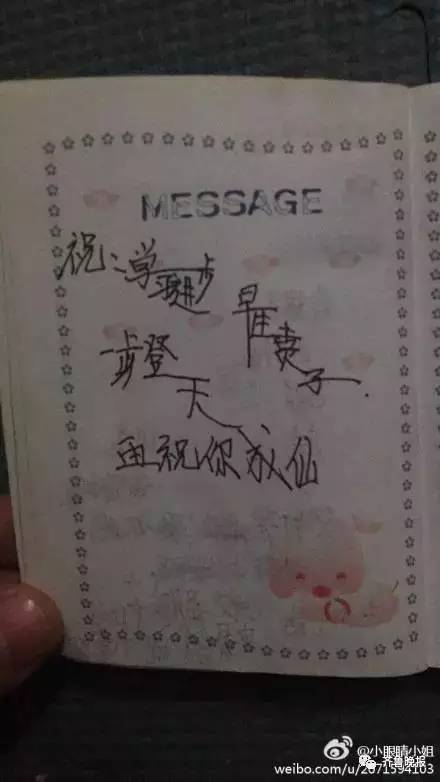 MESSAGE
祝:学习进步
早生贵子
一步登天
再祝你成仙
@小眼睛小姐
齐鲁晚报